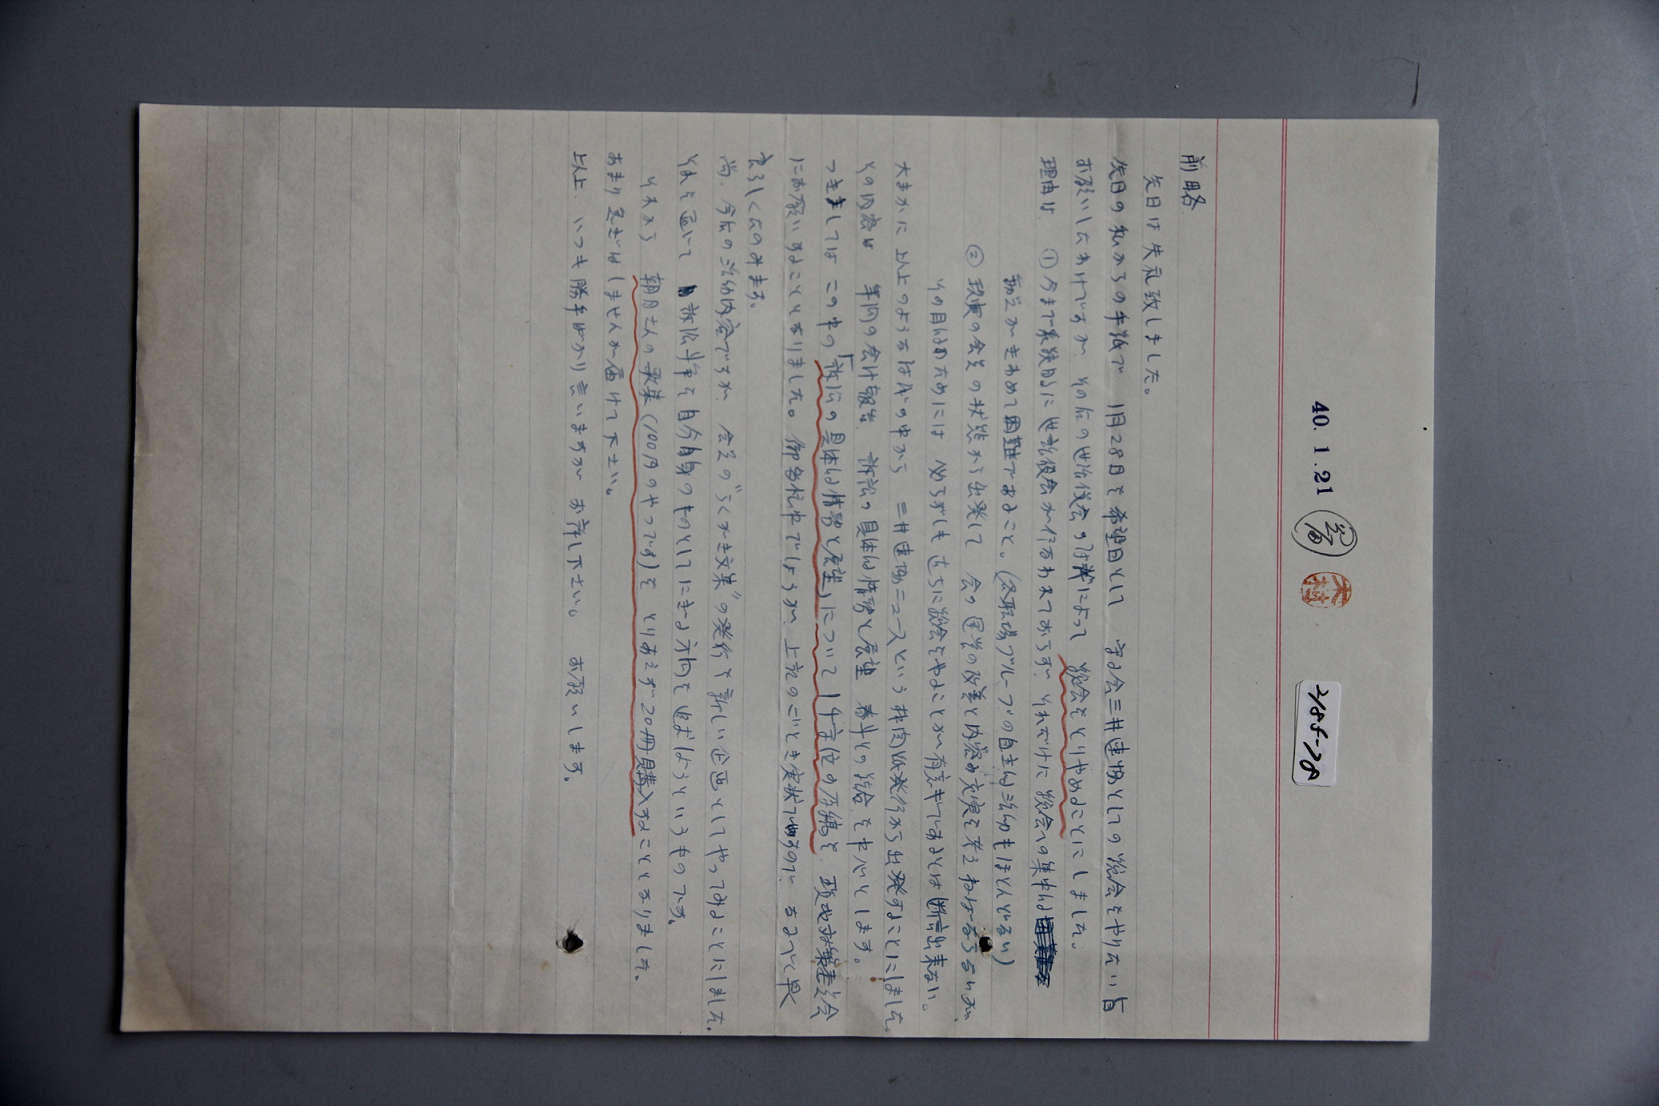 40.1.21
2185-28
前略
先日は失礼致しました。
先日の私からの手紙で 1月28日を希望日として 守る会三井建場としての総会をやりたい旨
お願いしたわけですが、その后の世話役会の討議によって 総会をとりやめることにしました。
理由は ①今まで長期的に世話役会が行なわれておらず、それだけに総会への集中は
動員がきわめて困難であること。(各職場グループの自主的活動もほとんどない)
②現実の会員の状態から出発して 会の運営の改善と内容の充実を考えねばならないが、
その目的のためには 必らずしも直ちに総会をやることが有意ギであるとは断言出来ない。
大まかに 以上のような討ギの中から 三井建場ニュースという 機関紙発行から出発することにしました
その内容は 年間の会計報告、訴訟の具体的情勢と展望 春斗との結合 を中心とします。
つきましては この中の「訴訟の具体的情勢と展望」について 1
にお願いすることとなりました。御多忙中でしょうが、上記のごとき実状であるので、なるべく早く
よろしくたのみます。
尚、今后の活動内容ですが、会員の"らくがき文集"の発行を新しい企画としてやってみることにしました。
それを通じて 訴訟斗争を自分自身のものとしてにぎる方向を追求しようというものです。
それから 朝日さんの歌集(100円のやつです)を とりあえず20冊購入することとなりました。
あまり急ぎはしませんが届けて下さい。
以上、いつも勝手ばかり言いますが お許し下さい。 お願いします。